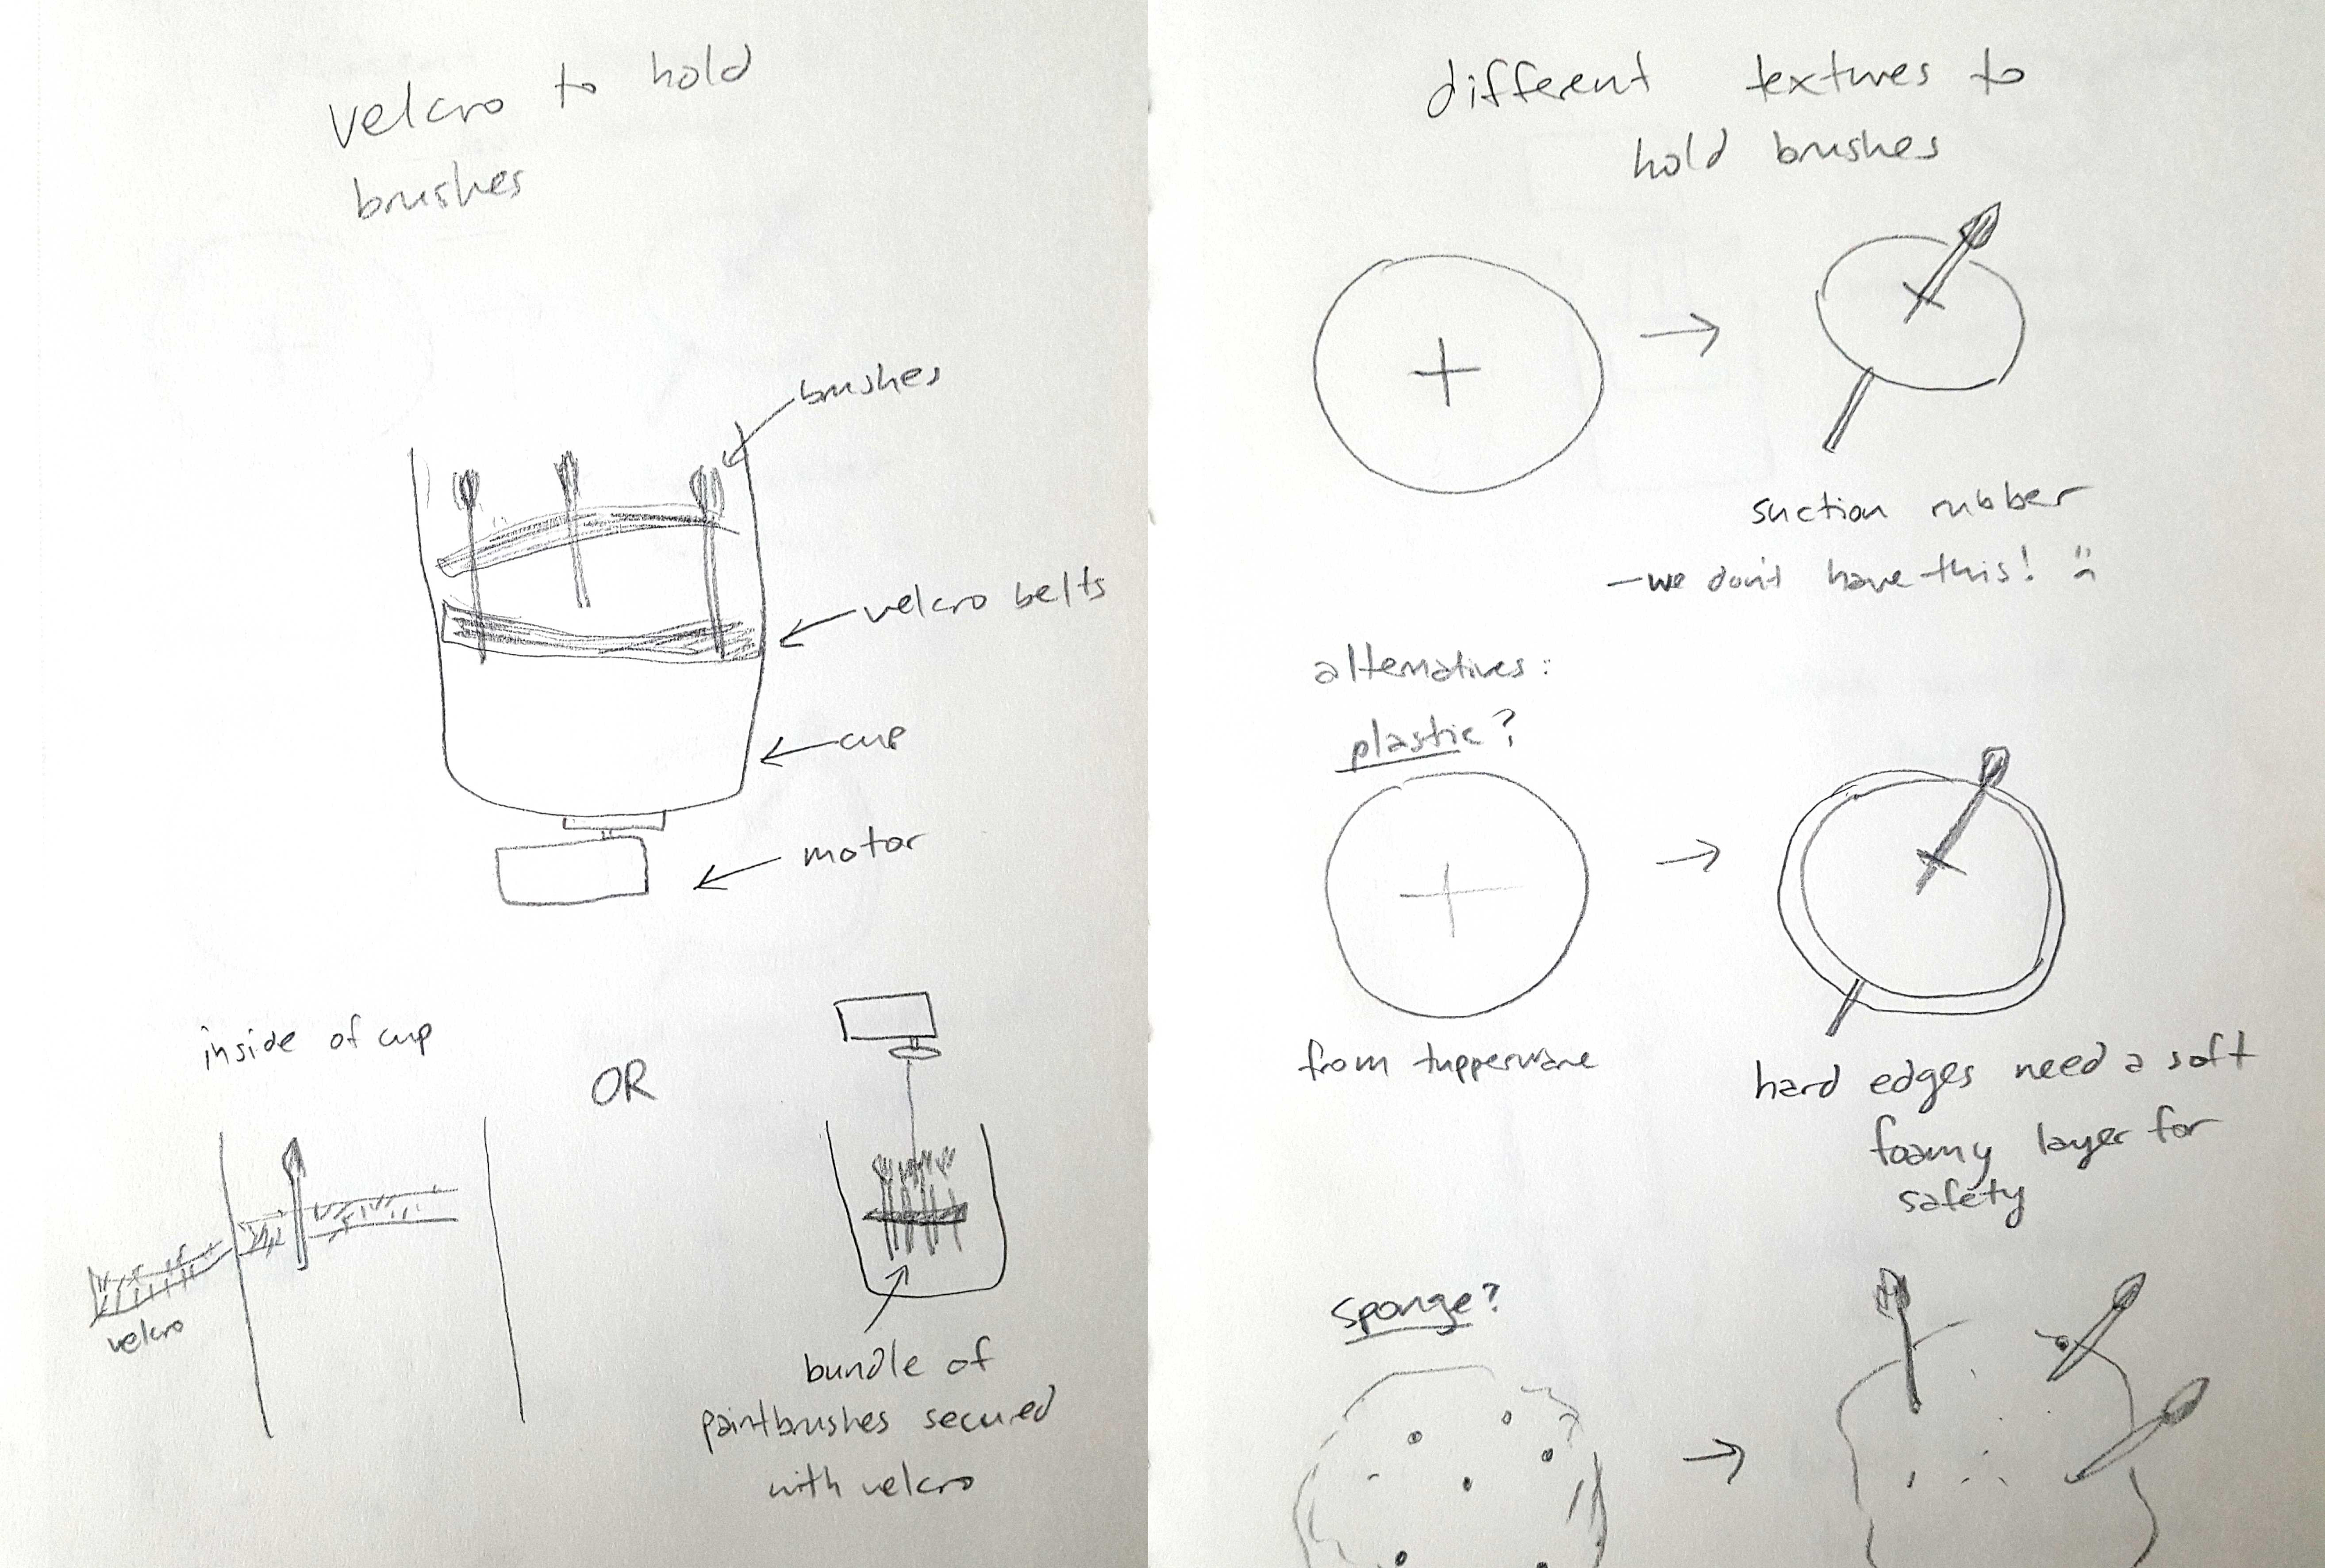 velcro to hold
brushes
brushes
velcro belts
cup
motor
inside of cup
OR
velcro
bundle of
paintbrushes secured
with velcro
different textures to
hold brushes
suction rubber
- we don't have this! :(
alternatives:
plastic?
from tupperware
hard edges need a soft
foamy layer for
safety
sponge?